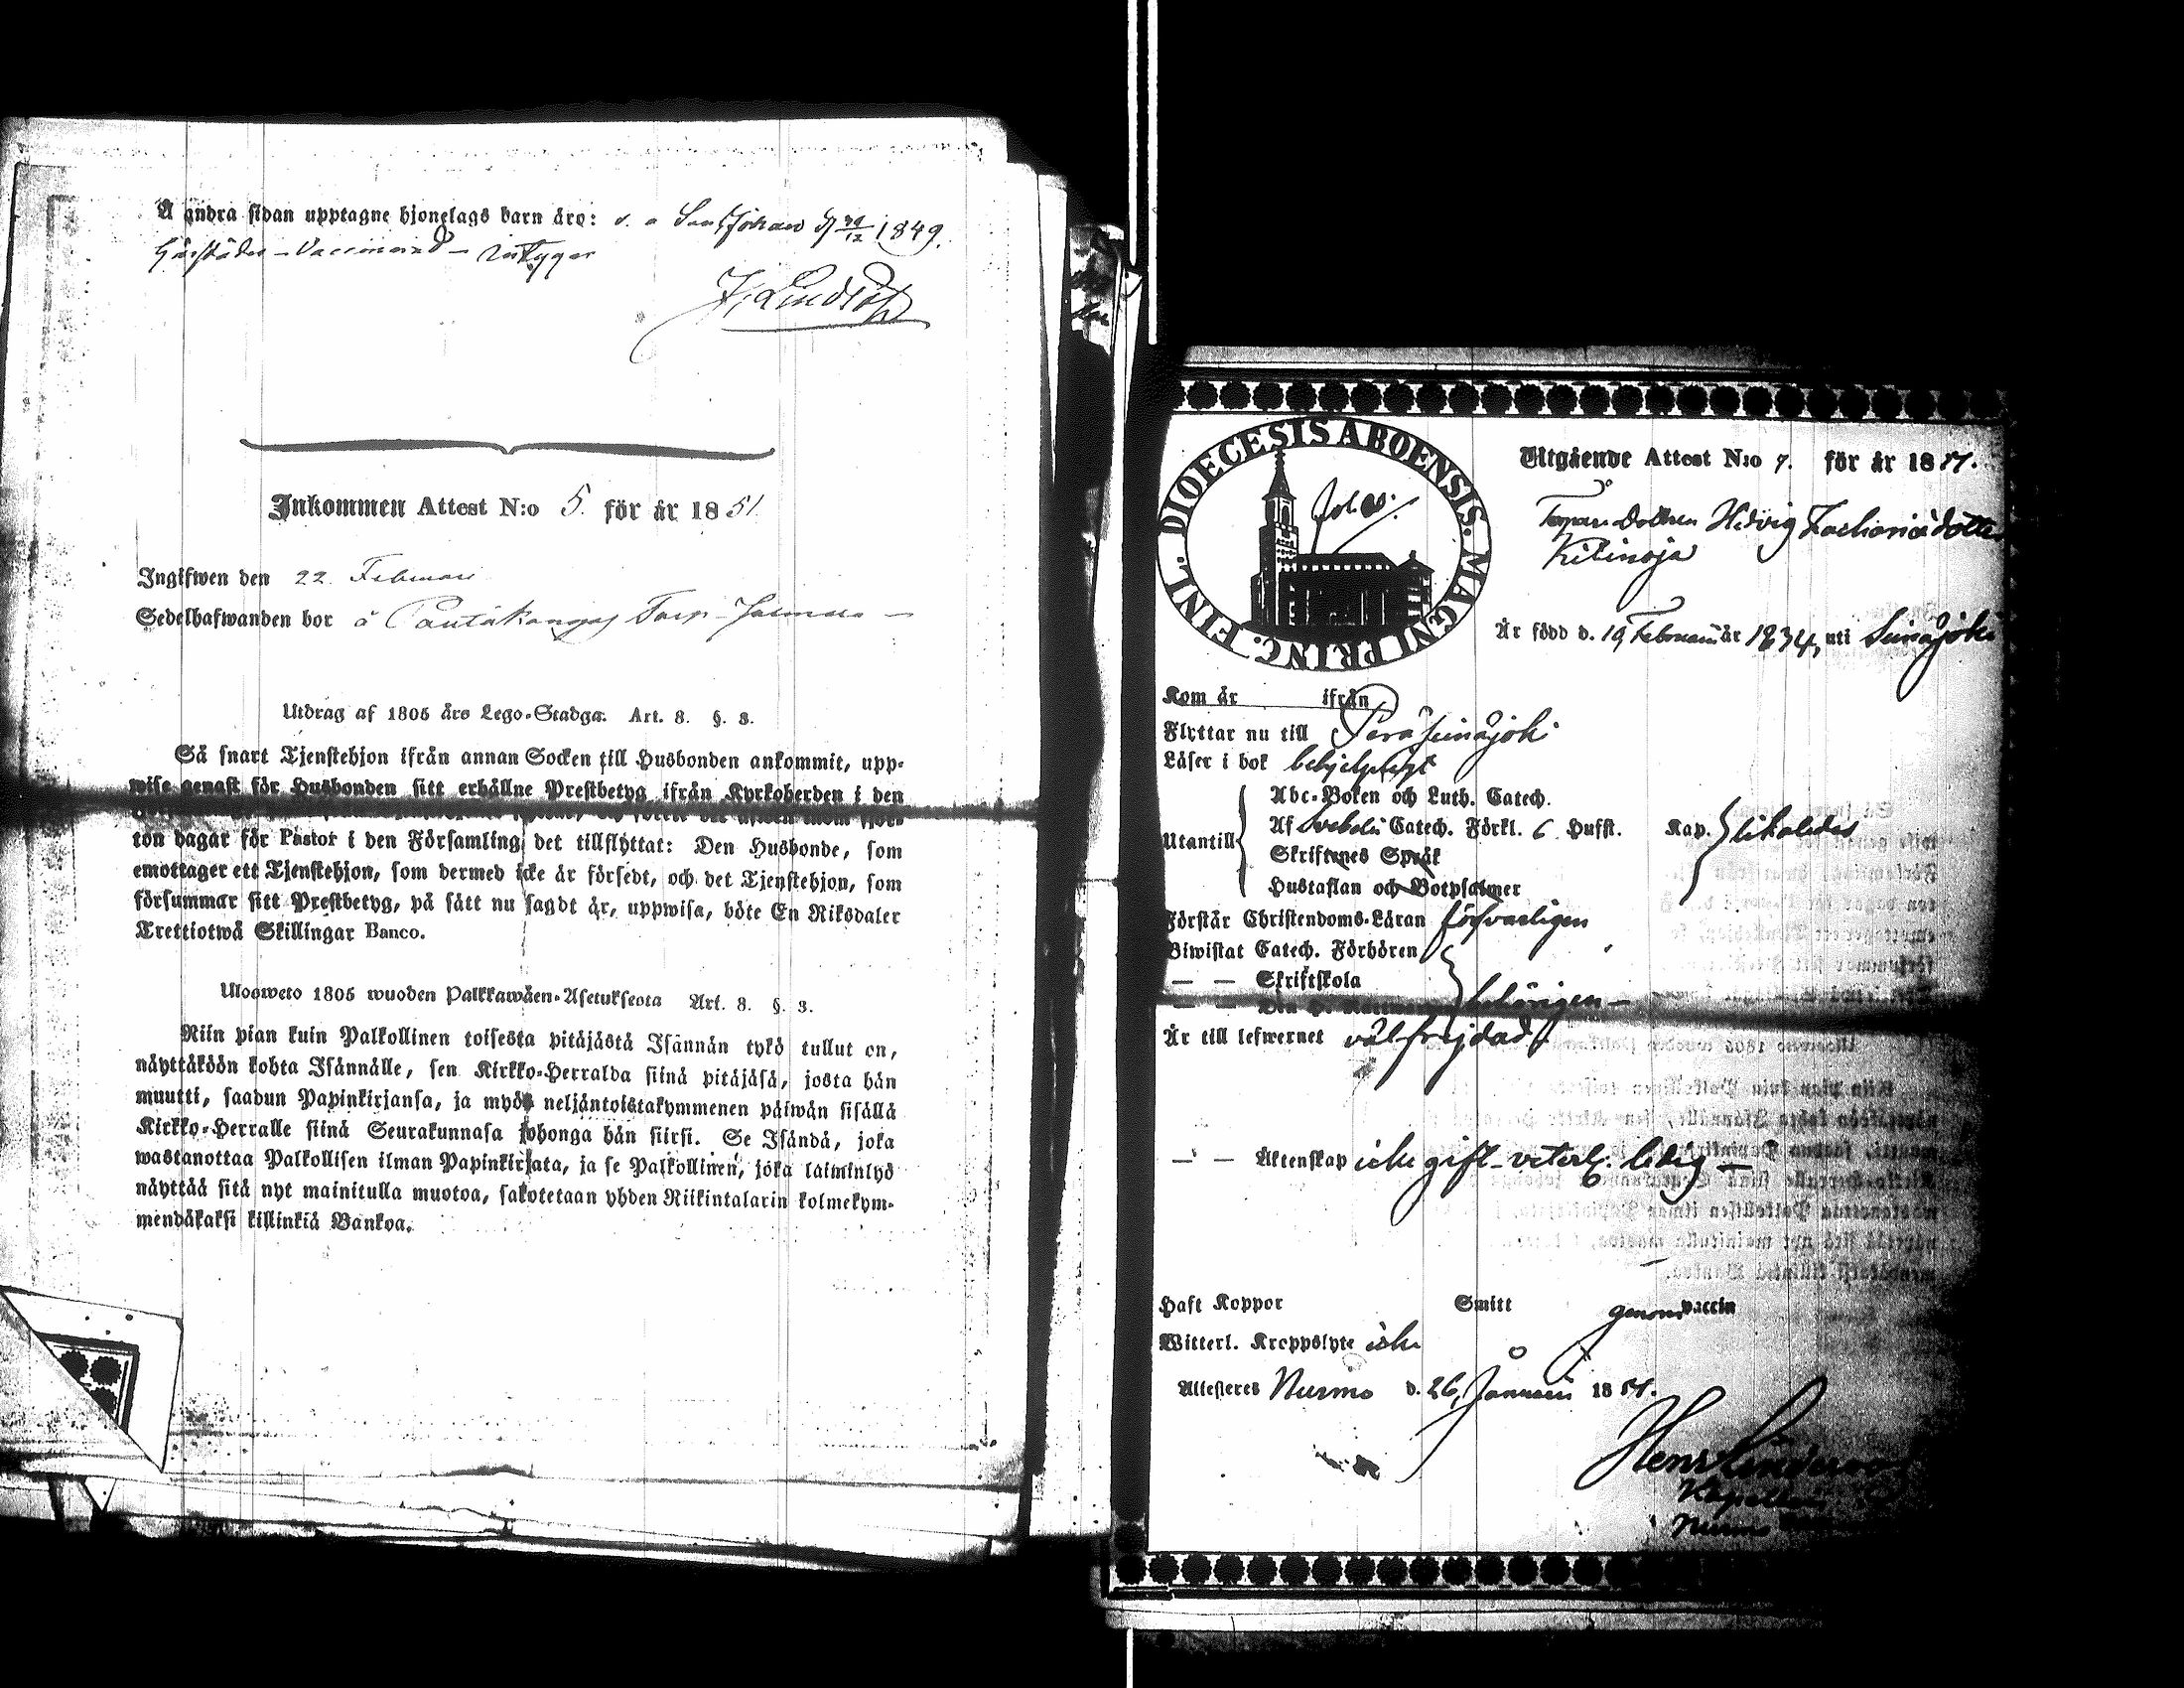 Å andra sidan upptagne hjonelags barn äro: Johan d 1849.
härstädes – Vaccinerad – intygar
Inkommen Attest N:o 5. för år 1851
Ingifwen den 22 Februari
Sedelhafwanden bor å Torp
Utdrag af 1805 års Lego-Stadga. Art. 8. §. 3.
Så snart Tjenstehjon ifrån annan Socken till Husbonden ankommit, upp-
wise genast för Husbonden sitt erhållne Prestbetyg ifrån Kyrkoherden i den
ton dagar för Pastor i den Församling det tillflyttat: Den Husbonde, som
emottager ett Tjenstehjon, som dermed icke är försedt, och det Tjenstehjon, som
försummar sitt Prestbetyg, på sätt nu sagdt är, uppwisa, böte En Riksdaler
Trettiotwå Skillingar Banco.
Ulosweto 1805 wuoden Palkkawäen-Asetuksesta Art. 8. §. 3.
Niin pian kuin Palkollinen toisesta pitäjästä Isännän tykö tullut on,
näyttäköön kohta Isännälle, sen Kirkko-Herralda siinä pitäjäsä, josta hän
muutti, saadun Papinkirjansa, ja myös neljäntoistakymmenen päiwän sisällä
Kirkko-Herralle siinä Seurakunnasa johonga hän siirsi. Se Isändä, joka
wastanottaa Palkollisen ilman Papinkirjata, ja se Palkollinen, joka laiminlyö
näyttää sitä nyt mainitulla muotoa, sakotetaan yhden Riikintalarin kolmekym-
mendäkaksi killinkiä Bankoa.
DIOECESIS ABOENSIS. MAGNI PRINC. FINL.
Utgående Attest N:o 7. för år 1851.
Hedvig Zachariädotter
Kitinoja
Är född d. 19 Februari år 1834, uti Seinäjoki
Kom år ifrån
Flyttar nu till Peräseinäjoki
Läser i bok behjelpligt
Utantill
Abc-Boken och Luth. Catech.
Af Svebelii Catech. Förkl. 6 Hufst. Kap. likaledes
Skriftenes Språk
Hustaflan och Botpsalmer
Förstår Christendoms-Läran försvarligen
Biwistat Catech. Förhören
— — Skriftskola
— — behörigen –
Är till lefwernet välfrejdad
— — Äktenskap icke gift – veterl. ledig –
Haft Koppor Smitt genom vaccin
Witterl. Kroppslyte icke
Attesteres Nurmo d. 26 Januari 1851.
Kapellan
Nurmo